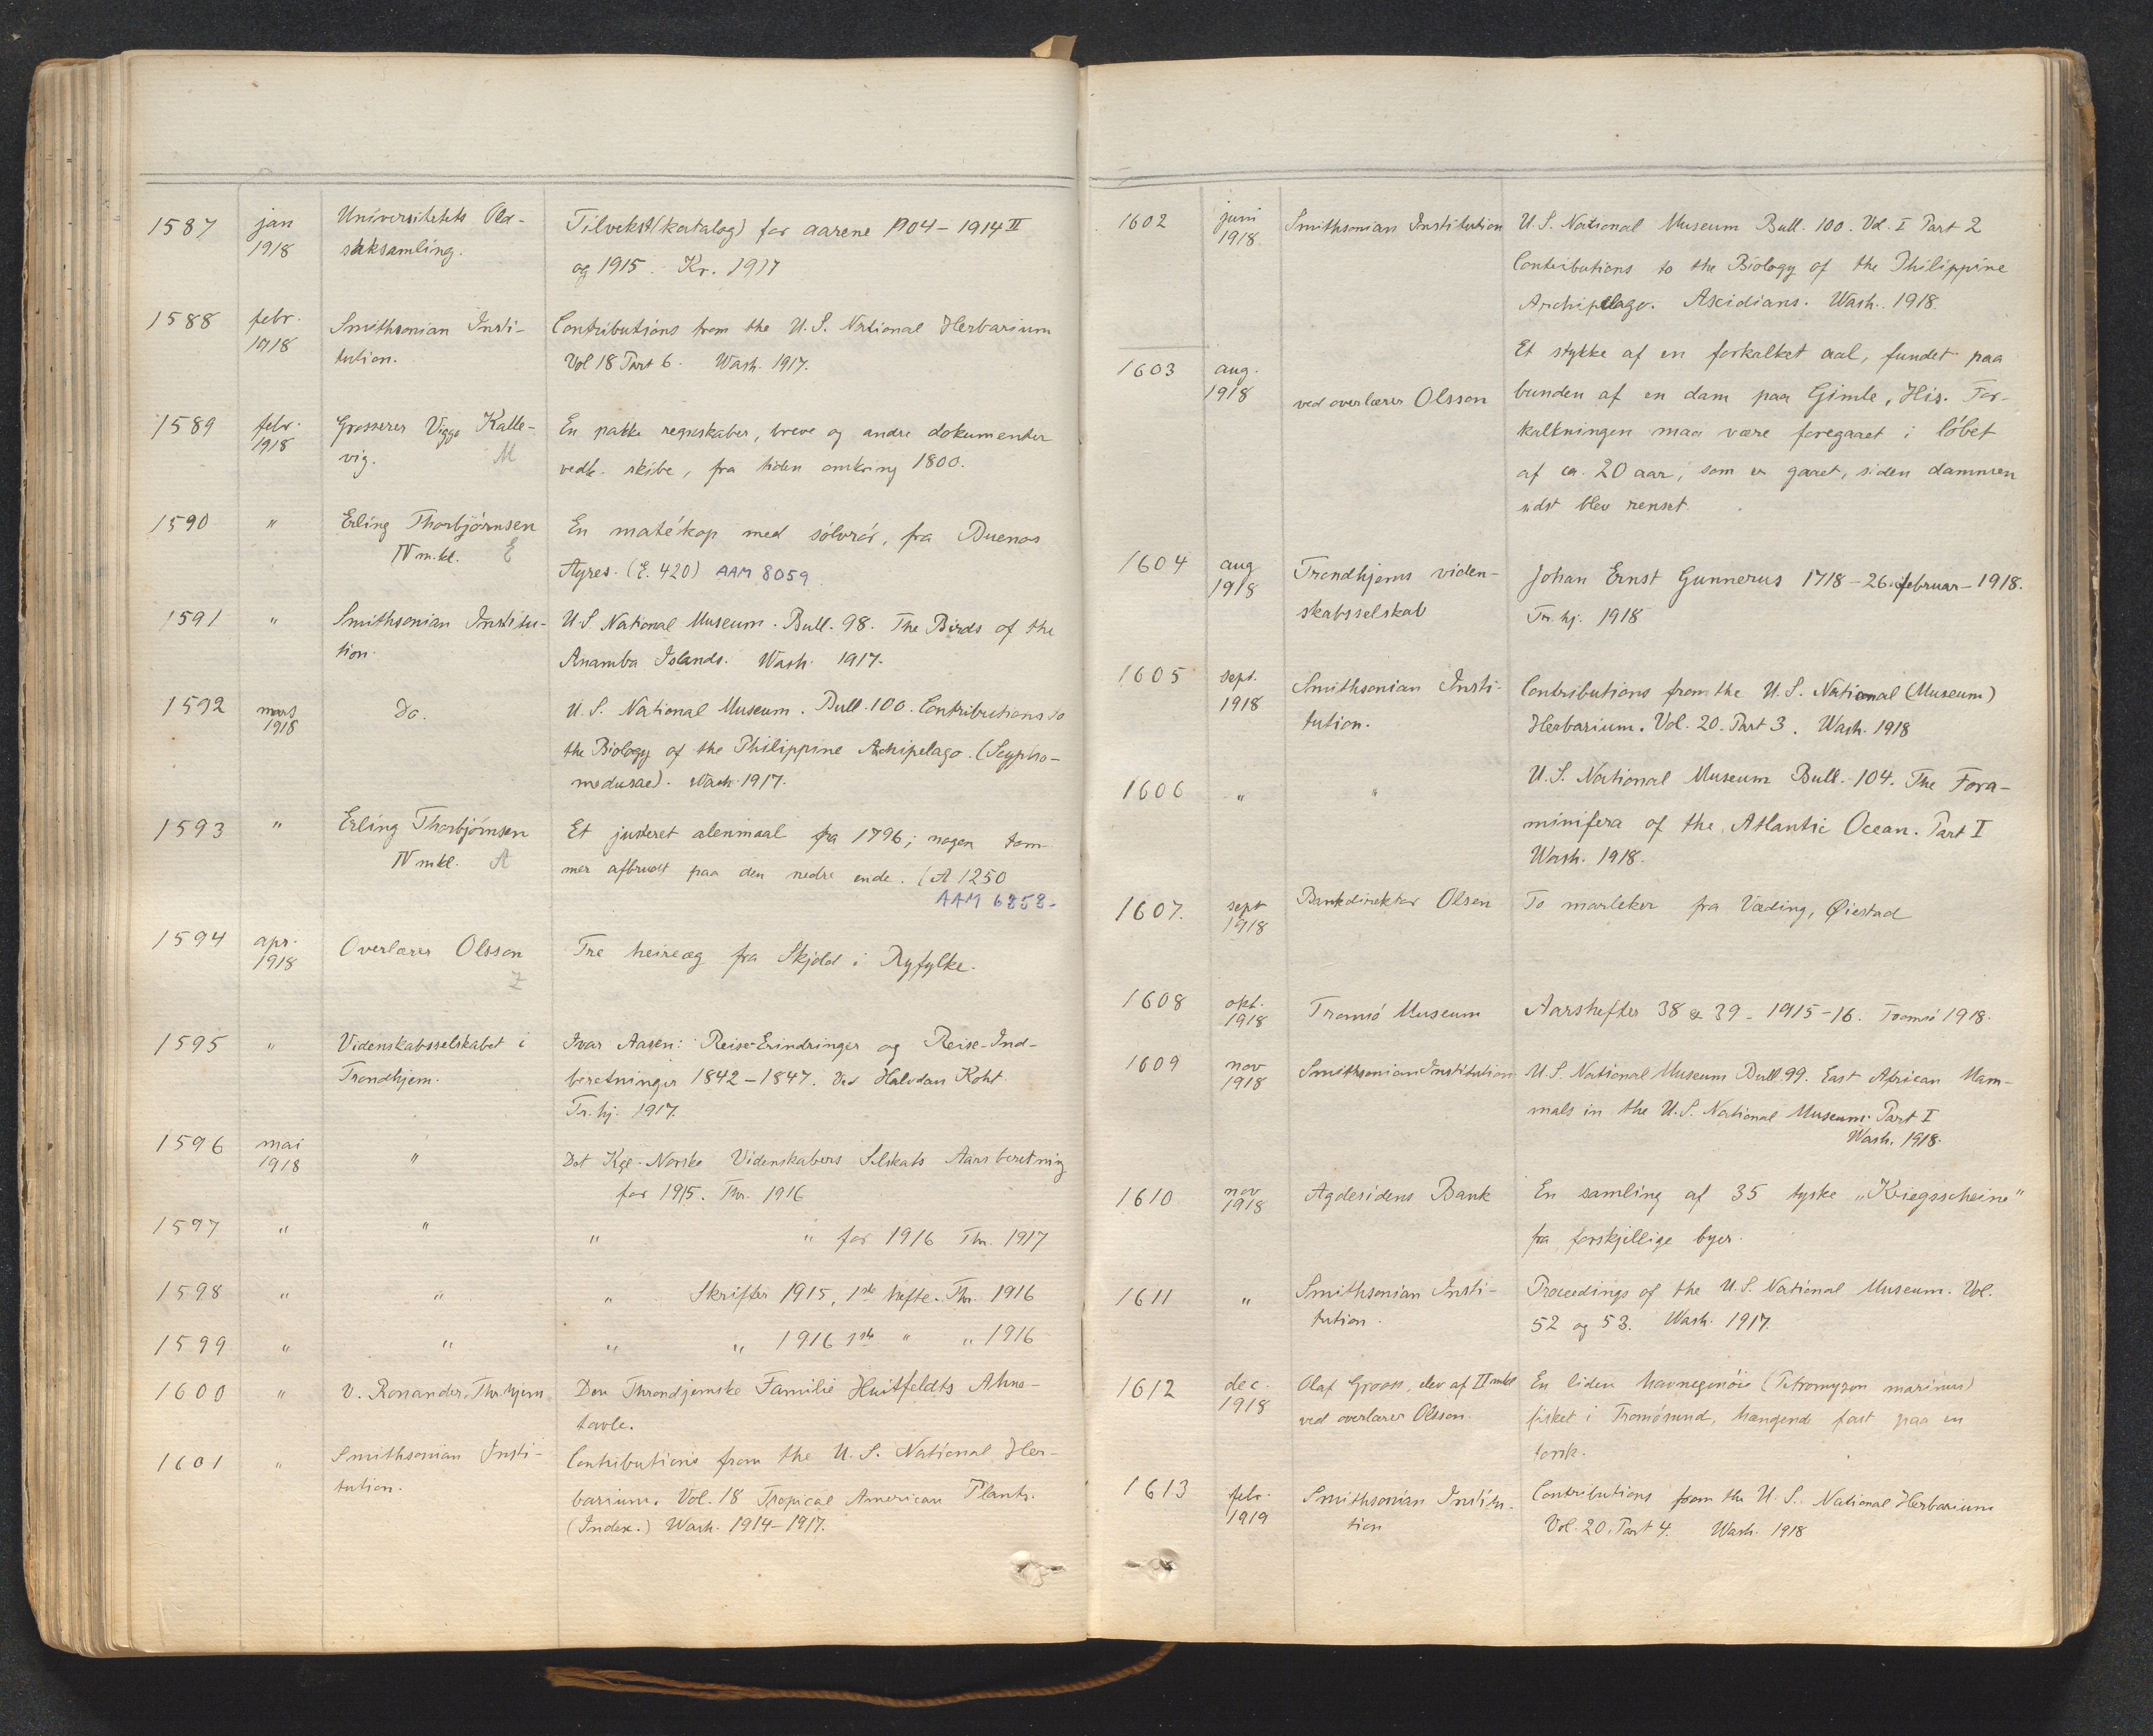 1587 jan 1918 Universitetets Old- Tilvekst (katalog) for aarene 1904 – 1914 II
saksamling. og 1915. Kr. 1917
1588 febr. 1918 Smithsonian Insti- Contributions from the U.S. National Herbarium
tution. Vol 18 Part 6. Wash. 1917.
1589 febr. 1918 Grosserer Viggo Kalle- En pakke regnskaber, breve og andre dokumenter
vig. M vedk. skibe, fra tiden omkring 1800.
1590 " Erling Thorbjörnsen En matékop med sölvrör, fra Buenos
IV m.kl. E Ayres. (E. 420) AAM 8059
1591 " Smithsonian Institu- U S National Museum. Bull. 98. The Birds of the
tion. Anamba Islands. Wash. 1917.
1592 mars 1918 Do. U.S. National Museum. Bull. 100. Contributions to
the Biology of the Philippine Archipelago. (Scypho-
medusae). Wash. 1917.
1593 " Erling Thorbjörnsen Et justeret alenmaal fra 1796; nogen tom-
IV mkl. A mer afbrudt paa den nedre ende. (A 1250
AAM 6858.
1594 apr. 1918 Overlærer Olsson Tre heireæg fra Skjold i Ryfylke.
Z
1595 " Videnskabsselskabet i Ivar Aasen: Reise-Erindringer og Reise-Ind-
Trondhjem. beretninger 1842 – 1847. Ved Halvdan Koht.
Tr.hj. 1917.
1596 mai 1918 " Det Kgl. Norske Videnskabers Selskabs Aarsberetning
for 1915. Thr. 1916
1597 " " " " for 1916 Thr. 1917
1598 " " " Skrifter 1915, 1ste hefte. Thr. 1916
1599 " " " " 1916 1ste " " 1916
1600 " v. Ronander, Thr.hjem Den Throndjemske Familie Huitfeldts Ahne-
tavle.
1601 " Smithsonian Insti- Contributions from the U.S. National Her-
tution. barium. Vol. 18 Tropical American Plants.
(Index.) Wash. 1914–1917.
1602 juni 1918. Smithsonian Institution U.S. National Museum Bull. 100. Vol. I Part 2
Contributions to the Biology of the Philippine
Archipelago. Ascidians. Wash. 1918.
1603 aug. 1918 Et stykke af en forkalket aal, fundet paa
ved overlærer Olsson bunden af en dam paa Gimle, His. For-
kalkningen maa være foregaaet i löbet
af ca. 20 aar, som er gaaet, siden dammen
sidst blev renset.
1604 aug 1918 Trondhjems viden- Johan Ernst Gunnerus 1718 – 26. februar – 1918.
skabsselskab Tr.hj. 1918
1605 sept. 1918 Smithsonian Insti- Contributions from the U.S. National (Museum)
tution. Herbarium. Vol. 20. Part 3. Wash. 1918
1606 " " U.S. National Museum Bull. 104. The Fora-
minifera of the Atlantic Ocean. Part I
Wash. 1918.
1607. sept 1918 Bankdirektør Olsen To marleker fra Væding, Øiestad
1608 okt. 1918 Tromsö Museum Aarshefter 38 & 39 – 1915–16. Tromsö 1918.
1609 nov 1918 Smithsonian Institution U.S. National Museum Bull. 99. East African Mam-
mals in the U.S. National Museum. Part I
Wash. 1918.
1610 nov 1918 Agdesidens Bank En samling af 35 tyske „Kriegsscheine"
fra forskjellige byer.
1611 " Smithsonian Insti- Proceedings of the U.S. National Museum. Vol.
tution. 52 og 53. Wash. 1917.
1612 dec. 1918 Olaf Groos, elev af II mkl En liden havnegenöie (Petromyzon marinus)
ved overlærer Olsson. fisket i Tromösund, hængende fast paa en
torsk.
1613 febr. 1919 Smithsonian Institu- Contributions from the U.S. National Herbarium
tion Vol. 20. Part 4. Wash. 1918